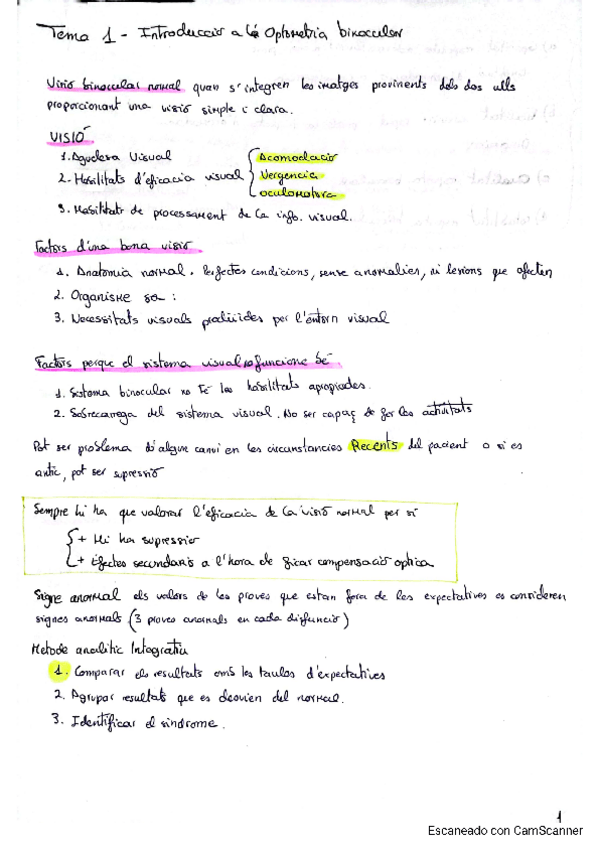 Tema 1 - Introducció a la Optometria binocular
Visió binocular normal quan s'integren les imatges provinents dels dos ulls
proporcionant una visió simple i clara.
VISIÓ
1. Agudesa Visual
2. Habilitats d'eficacia visual { Acomodació
Vergencia
oculomotora
3. Habilitats de processament de la info. visual.
Factors d'una bona visió.
1. Anatomia normal. Perfectes condicions, sense anomalies, ni lesions que afecten
2. Organisme sa:
3. Necessitats visuals produïdes per l'entorn visual
Factors perque el sistema visual no funcione bé.
1. Sistema binocular no té les habilitats apropiades.
2. Sobrecarrega del sistema visual. No ser capaç de fer les activitats
Pot ser problema d'algun canvi en les circunstancies Recents del pacient o si es
antic, pot ser supressió
Sempre hi ha que valorar l'eficacia de la visió normal per si
{ + Hi ha supressió
+ Efectes secundaris a l'hora de ficar compensació optica
Signe anormal els valors de les proves que estan fora de les expectatives es consideren
signes anormals (3 proves anormals en cada disfunció)
Metode analitic Integratiu
1. Comparar els resultats amb les taules d'expectatives
2. Agrupar resultats que es desvien del normal.
3. Identificar el sindrome.
1
Escaneado con CamScanner